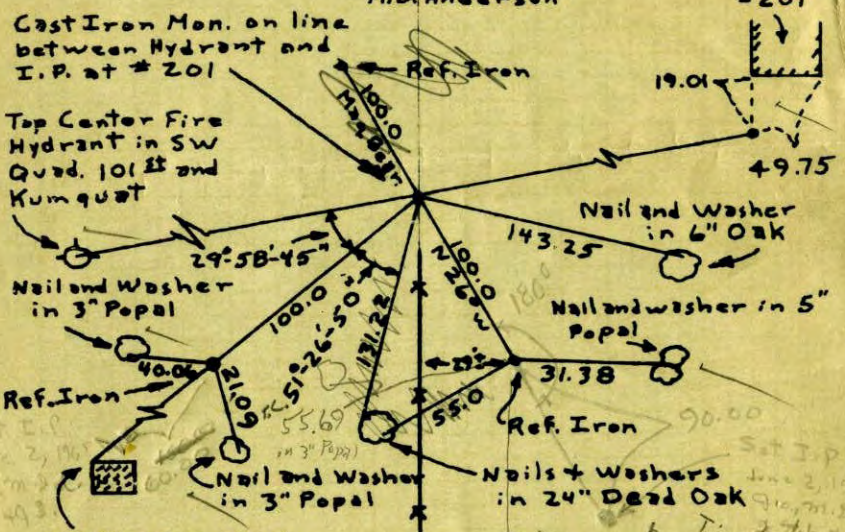 Cast Iron Mon. on line
between Hydrant and
I.P. at # 201
Ref. Iron
201
19.01
49.75
100.0
Mag. Bear.
Top Center Fire
Hydrant in SW
Quad. 101 st and
Kumquat
29°-58'-45"
143.25
Nail and Washer
in 6" Oak
Nail and Washer
in 3" Popal
100.0
51°-26'-50"
131.22
100.0
N 26° W
180°
Nail and washer in 5"
Popal
40.06
21.09
29'±
31.38
55.0
Ref. Iron
Ref. Iron
55.69
in 3" Popal
90.00
Nail and Washer
in 3" Popal
Nails + Washers
in 24" Dead Oak
Set I.P.
June 2,